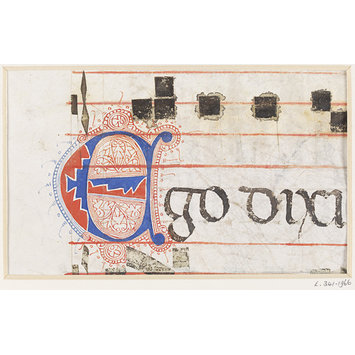 Ego dixi
E. 341-1966